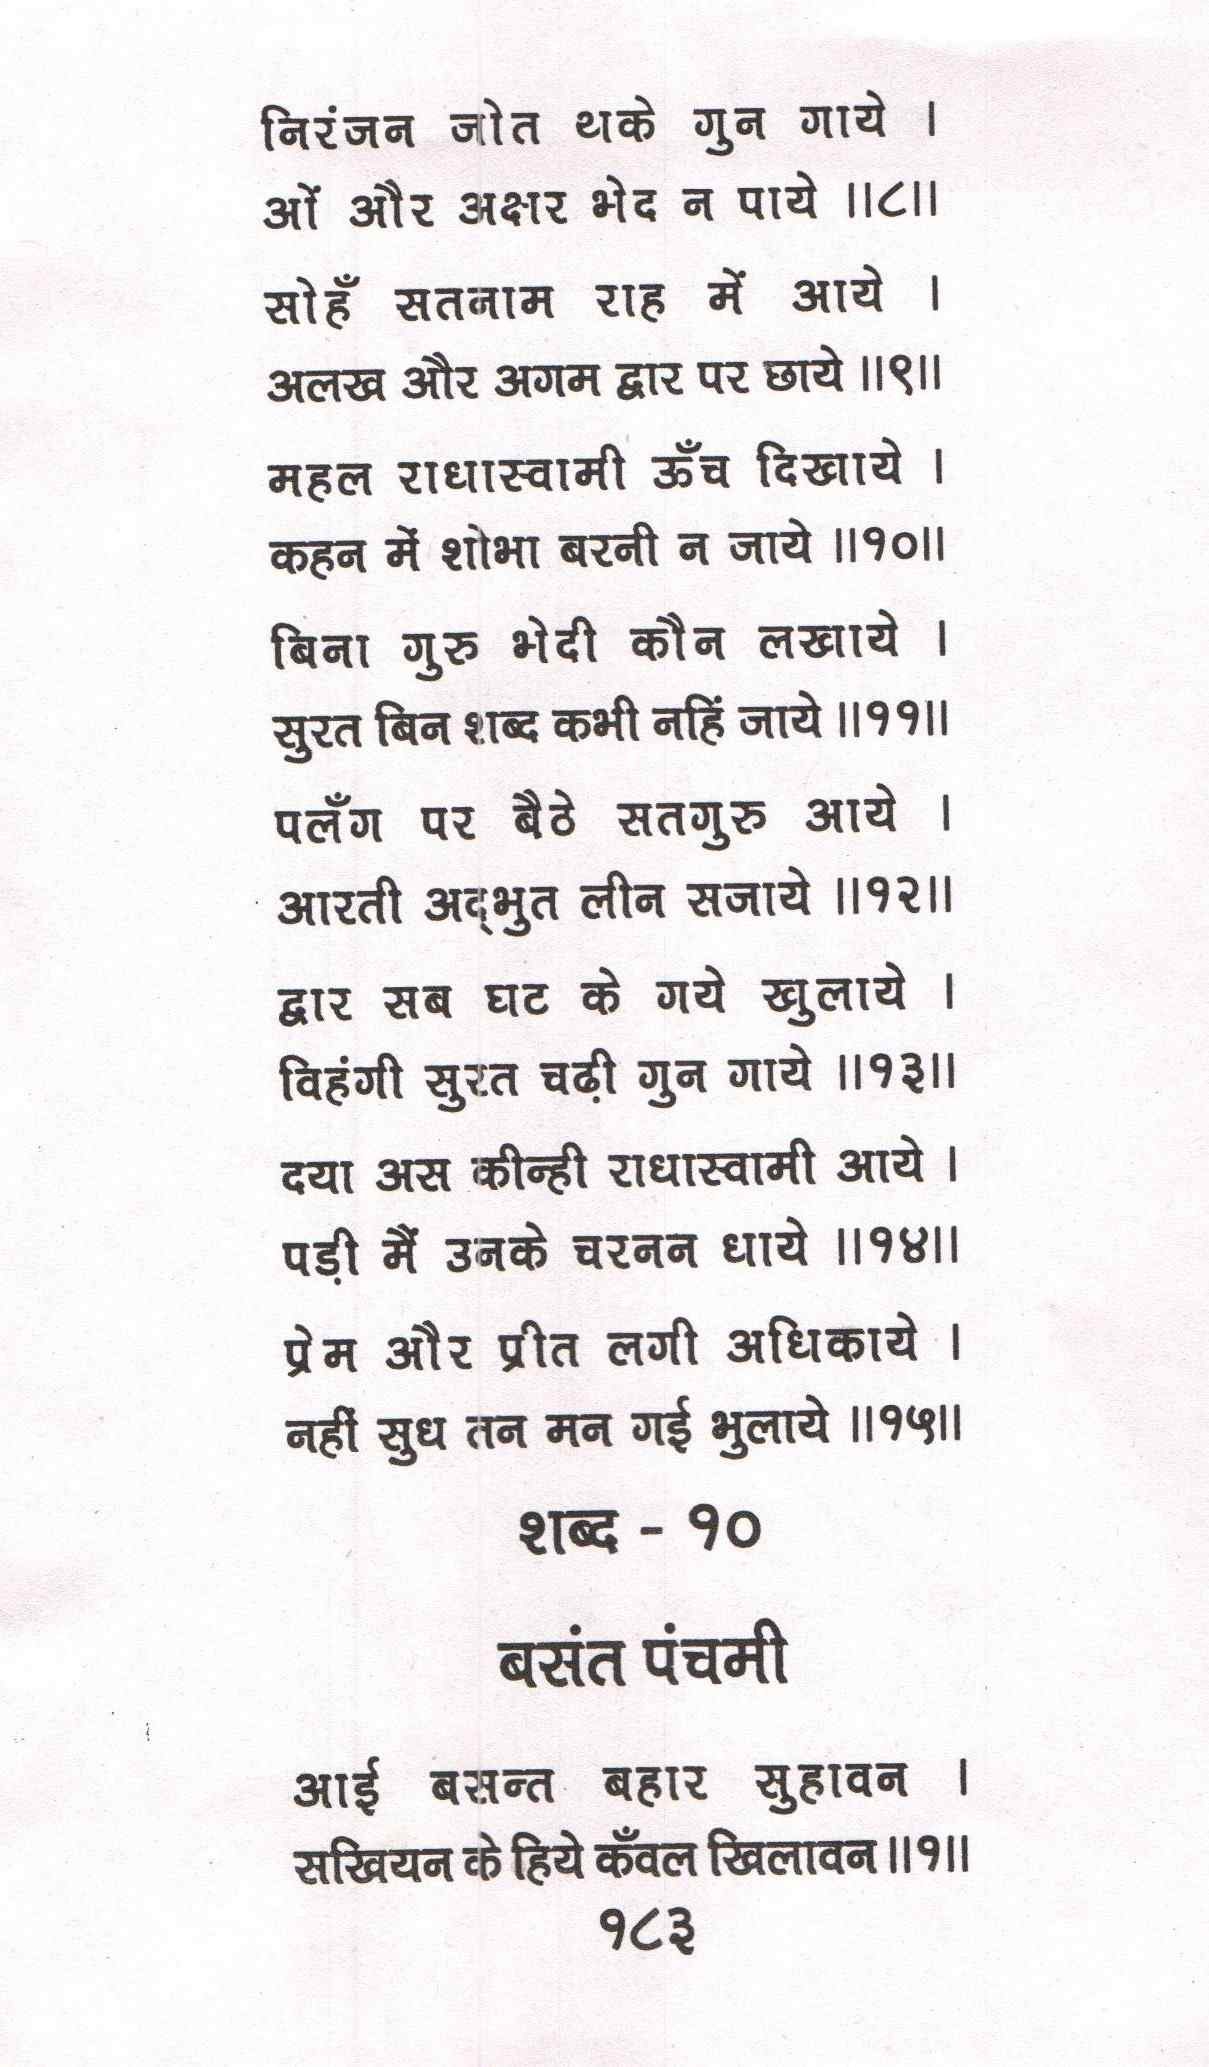 निरंजन जोत थके गुन गाये ।
ओं और अक्षर भेद न पाये ॥८॥
सोहँ सतनाम राह में आये ।
अलख और अगम द्वार पर छाये ॥९॥
महल राधास्वामी ऊँच दिखाये ।
कहन में शोभा बरनी न जाये ॥१०॥
बिना गुरु भेदी कौन लखाये ।
सुरत बिन शब्द कभी नहिं जाये ॥११॥
पलँग पर बैठे सतगुरु आये ।
आरती अद्‌भुत लीन सजाये ॥१२॥
द्वार सब घट के गये खुलाये ।
विहंगी सुरत चढ़ी गुन गाये ॥१३॥
दया अस कीन्ही राधास्वामी आये ।
पड़ी मैं उनके चरनन धाये ॥१४॥
प्रेम और प्रीत लगी अधिकाये ।
नहीं सुध तन मन गई भुलाये ॥१५॥
शब्द - १०
बसंत पंचमी
आई बसन्त बहार सुहावन ।
सखियन के हिये कँवल खिलावन ॥१॥
१८३